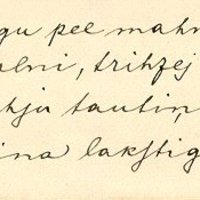 gu pee mahn
olni, trihzej
hja tautin,
ina lakstig